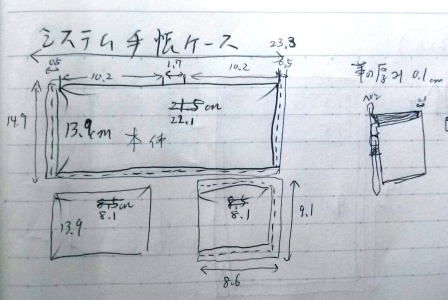 システム手帳ケース
23.3
0.5
10.2
1.7
10.2
0.5
革の厚み 0.1cm
14.9
13.9cm
21.5cm
22.1
本体
13.9
8.5cm
8.1
8.5
8.1
9.1
8.6